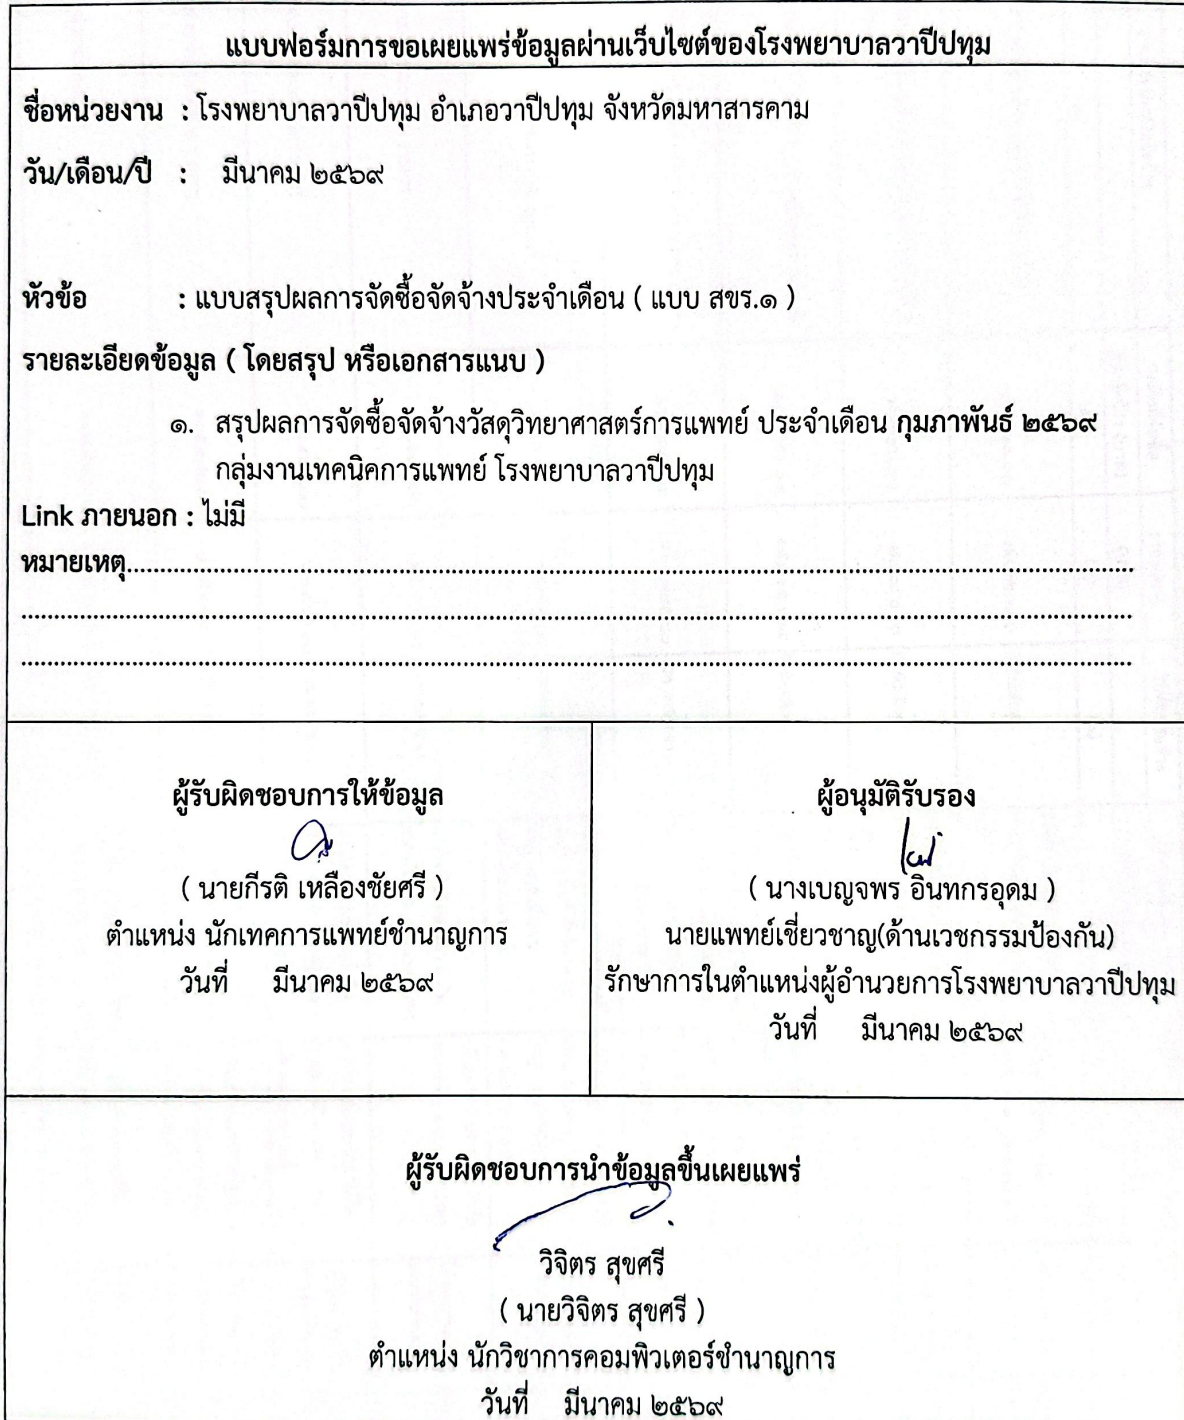 แบบฟอร์มการขอเผยแพร่ข้อมูลผ่านเว็บไซต์ของโรงพยาบาลวาปีปทุม
ชื่อหน่วยงาน : โรงพยาบาลวาปีปทุม อำเภอวาปีปทุม จังหวัดมหาสารคาม
วัน/เดือน/ปี : มีนาคม ๒๕๖๙
หัวข้อ : แบบสรุปผลการจัดซื้อจัดจ้างประจำเดือน ( แบบ สขร.๑ )
รายละเอียดข้อมูล ( โดยสรุป หรือเอกสารแนบ )
๑. สรุปผลการจัดซื้อจัดจ้างวัสดุวิทยาศาสตร์การแพทย์ ประจำเดือน กุมภาพันธ์ ๒๕๖๙
กลุ่มงานเทคนิคการแพทย์ โรงพยาบาลวาปีปทุม
Link ภายนอก : ไม่มี
หมายเหตุ
ผู้รับผิดชอบการให้ข้อมูล
( นายกีรติ เหลืองชัยศรี )
ตำแหน่ง นักเทคการแพทย์ชำนาญการ
วันที่ มีนาคม ๒๕๖๙
ผู้อนุมัติรับรอง
( นางเบญจพร อินทกรอุดม )
นายแพทย์เชี่ยวชาญ(ด้านเวชกรรมป้องกัน)
รักษาการในตำแหน่งผู้อำนวยการโรงพยาบาลวาปีปทุม
วันที่ มีนาคม ๒๕๖๙
ผู้รับผิดชอบการนำข้อมูลขึ้นเผยแพร่
วิจิตร สุขศรี
( นายวิจิตร สุขศรี )
ตำแหน่ง นักวิชาการคอมพิวเตอร์ชำนาญการ
วันที่ มีนาคม ๒๕๖๙